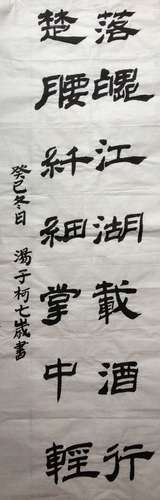 落魄江湖載酒行
楚腰纤細掌中輕
癸巳冬日 湯子柯七歲書